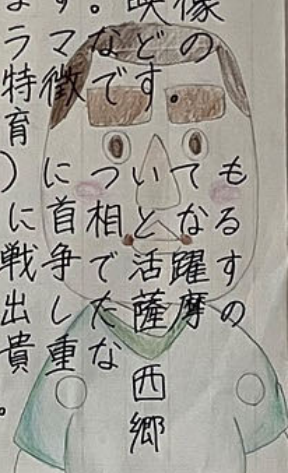 ます。映像
ラマなどの
特徴です。
育
)についても
に首相となる
戦争で活躍す
出した薩摩の
貴重な西郷
。